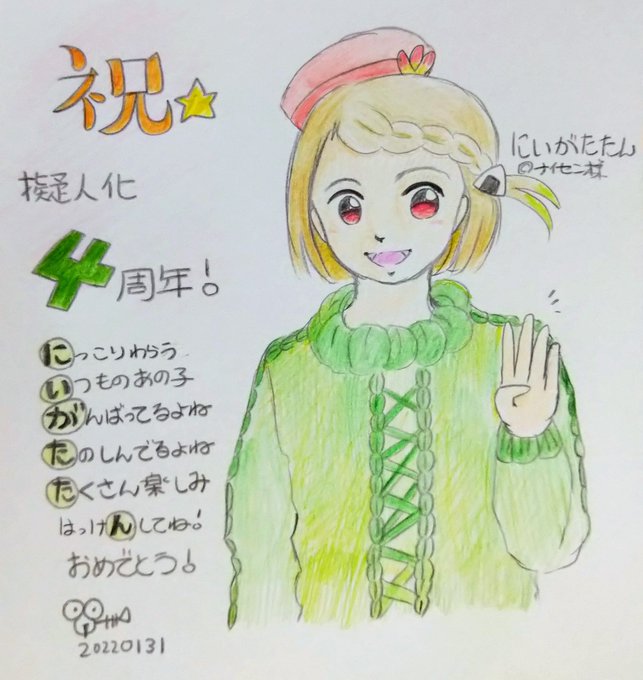 祝
擬人化
4周年!
にっこりわらう
いつものあの子
がんばってるよね
たのしんでるよね
たくさん楽しみ
はっけんしてね!
おめでとう!
20220131
にいがたたん
©ナイセン様